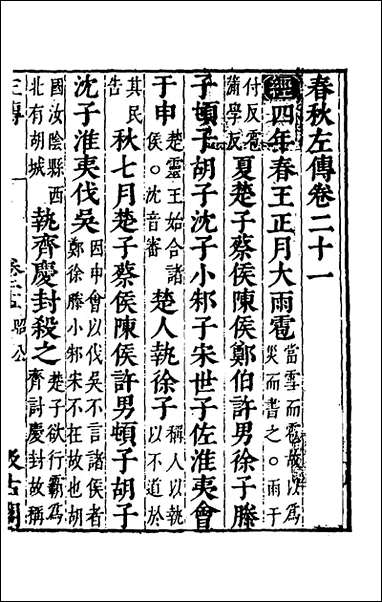 春秋左傳卷二十一
經四年春王正月大雨雹當雪而雹故以為災而書之○雨于
付反雹蒲學反夏楚子蔡侯陳侯鄭伯許男徐子滕
子頓子胡子沈子小邾子宋世子佐淮夷會
于申楚靈王始合諸侯○沈音審楚人執徐子稱人以執以不道於
其民告秋七月楚子蔡侯陳侯許男頓子胡子
沈子淮夷伐吳因申會以伐吳不言諸侯者鄭徐滕小邾宋不在故也胡
國汝陰縣西北有胡城執齊慶封殺之楚子欲行霸為齊討慶封故稱
昭公